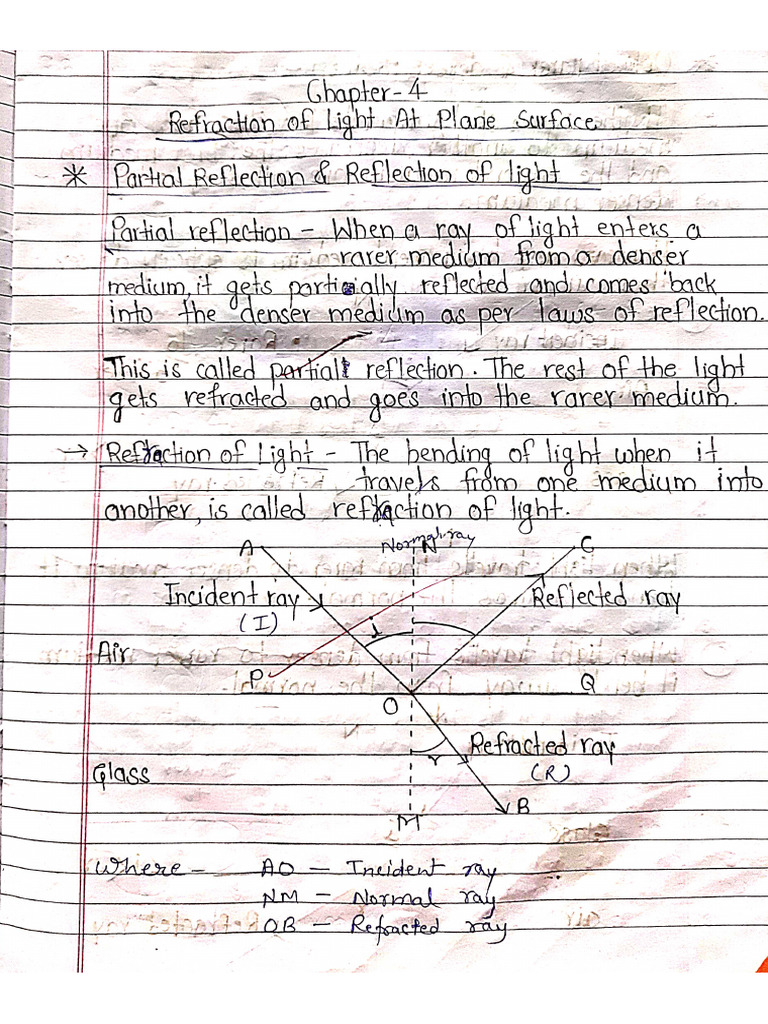 Chapter-4
Refraction of Light At Plane Surface
* Partial Reflection & Reflection of light
Partial reflection - When a ray of light enters a
rarer medium from a denser
medium, it gets partially reflected and comes back
into the denser medium as per laws of reflection.
This is called partial reflection. The rest of the light
gets refracted and goes into the rarer medium.
→ Refraction of Light - The bending of light when it
travels from one medium into
another, is called refraction of light.
A Normal ray N C
Incident ray Reflected ray
(I) i
Air
P Q
O
Refracted ray
Glass r (R)
B
M
Where - AO - Incident ray
NM - Normal ray
OB - Refracted ray